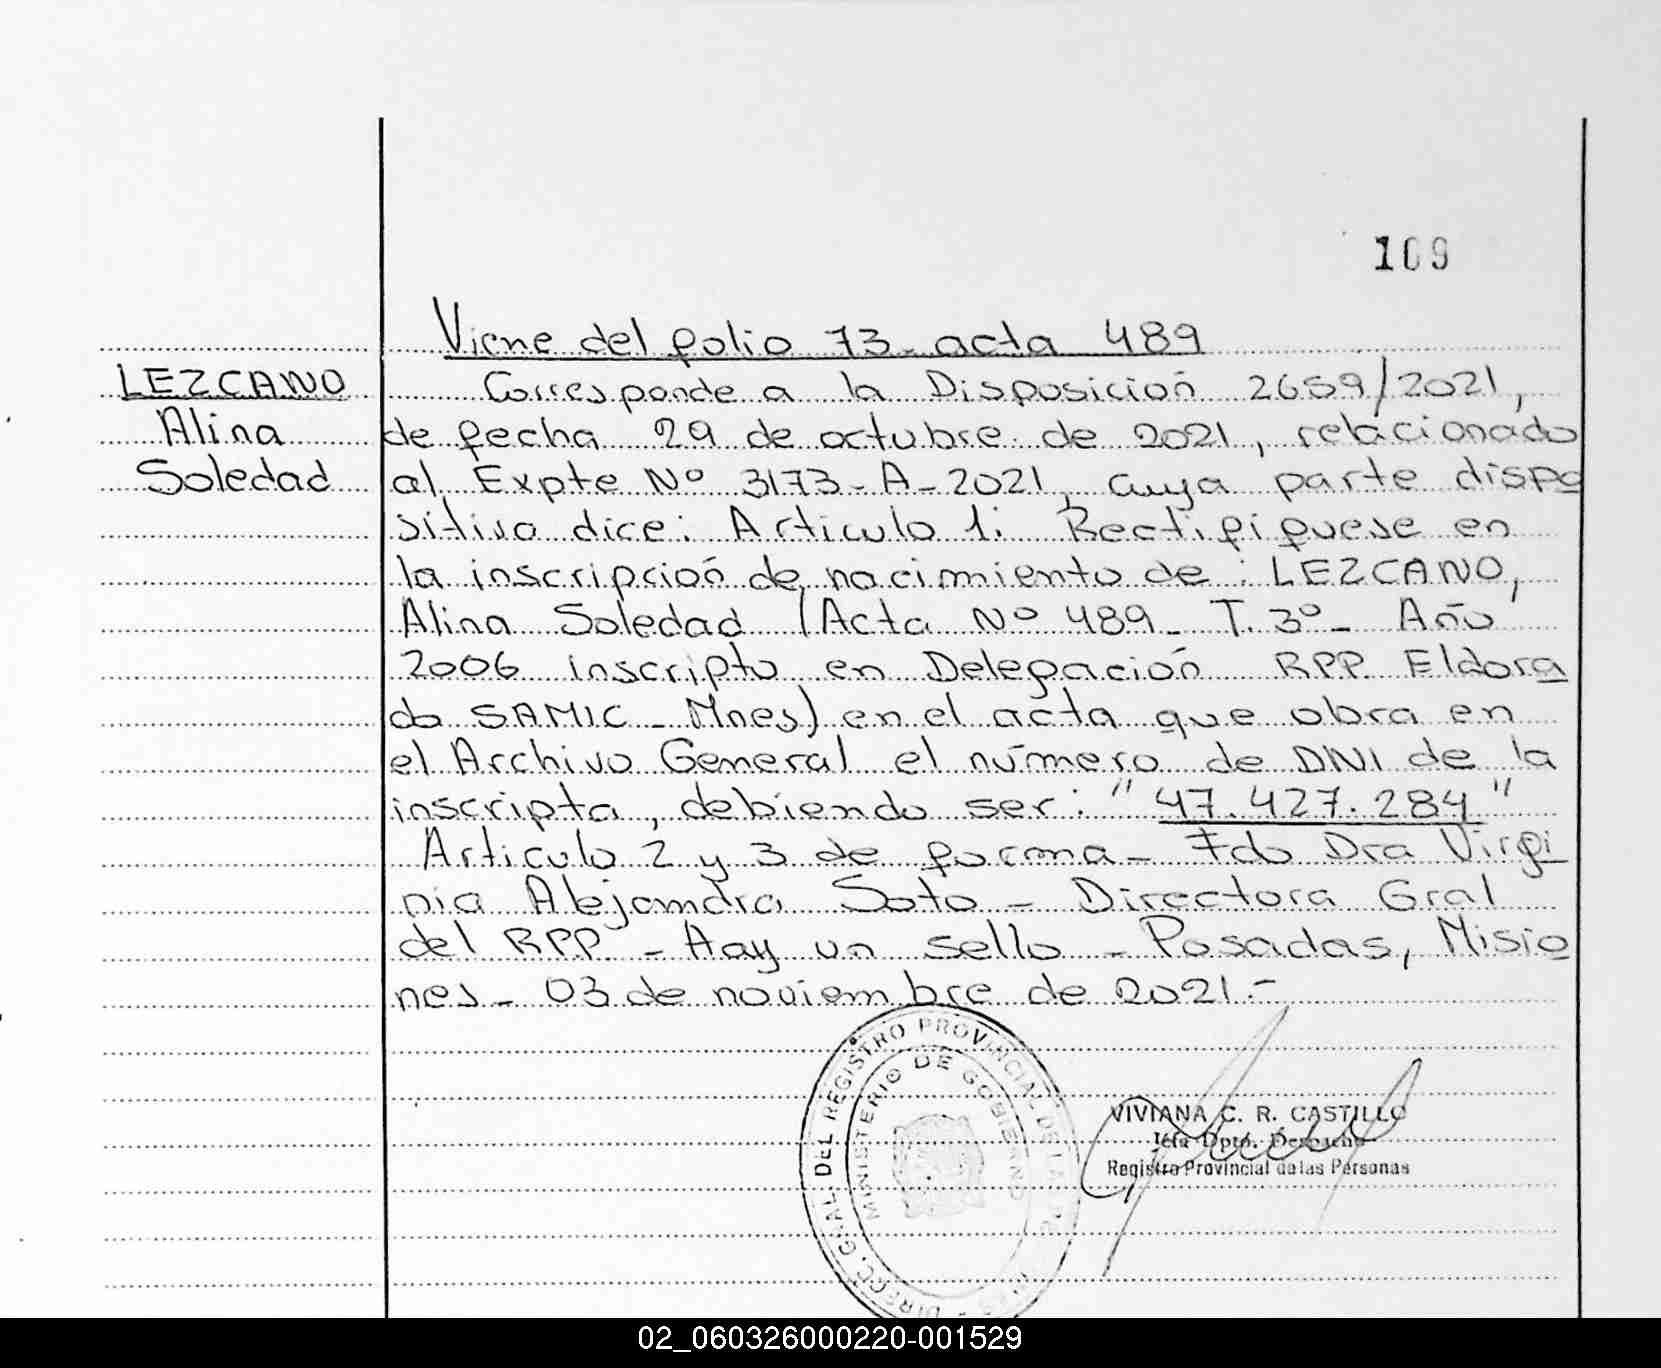 109
Viene del folio 73 - acta 489
LEZCANO
Alina
Soledad
Corresponde a la Disposición 2659/2021,
de fecha 29 de octubre de 2021, relacionado
al Expte Nº 3173-A-2021, cuya parte dispo
sitiva dice: Articulo 1: Rectifiquese en
la inscripción de nacimiento de: LEZCANO,
Alina Soledad (Acta Nº 489 - T. 3º - Año
2006 inscripto en Delegación RPP Eldora
do SAMIC - Mnes) en el acta que obra en
el Archivo General el número de DNI de la
inscripta, debiendo ser: "47.427.284"
Articulo 2 y 3 de forma - Fdo Dra Virgi
nia Alejandra Soto - Directora Gral
del RPP - Hay un sello - Posadas, Misio
nes - 03 de noviembre de 2021.-
DIRECC. GRAL DEL REGISTRO PROVINCIAL DE LAS PE
MINISTERIO DE GOBIERNO
VIVIANA C. R. CASTILLO
Jefa Dpto. Despacho
Registro Provincial de las Personas
02_060326000220-001529